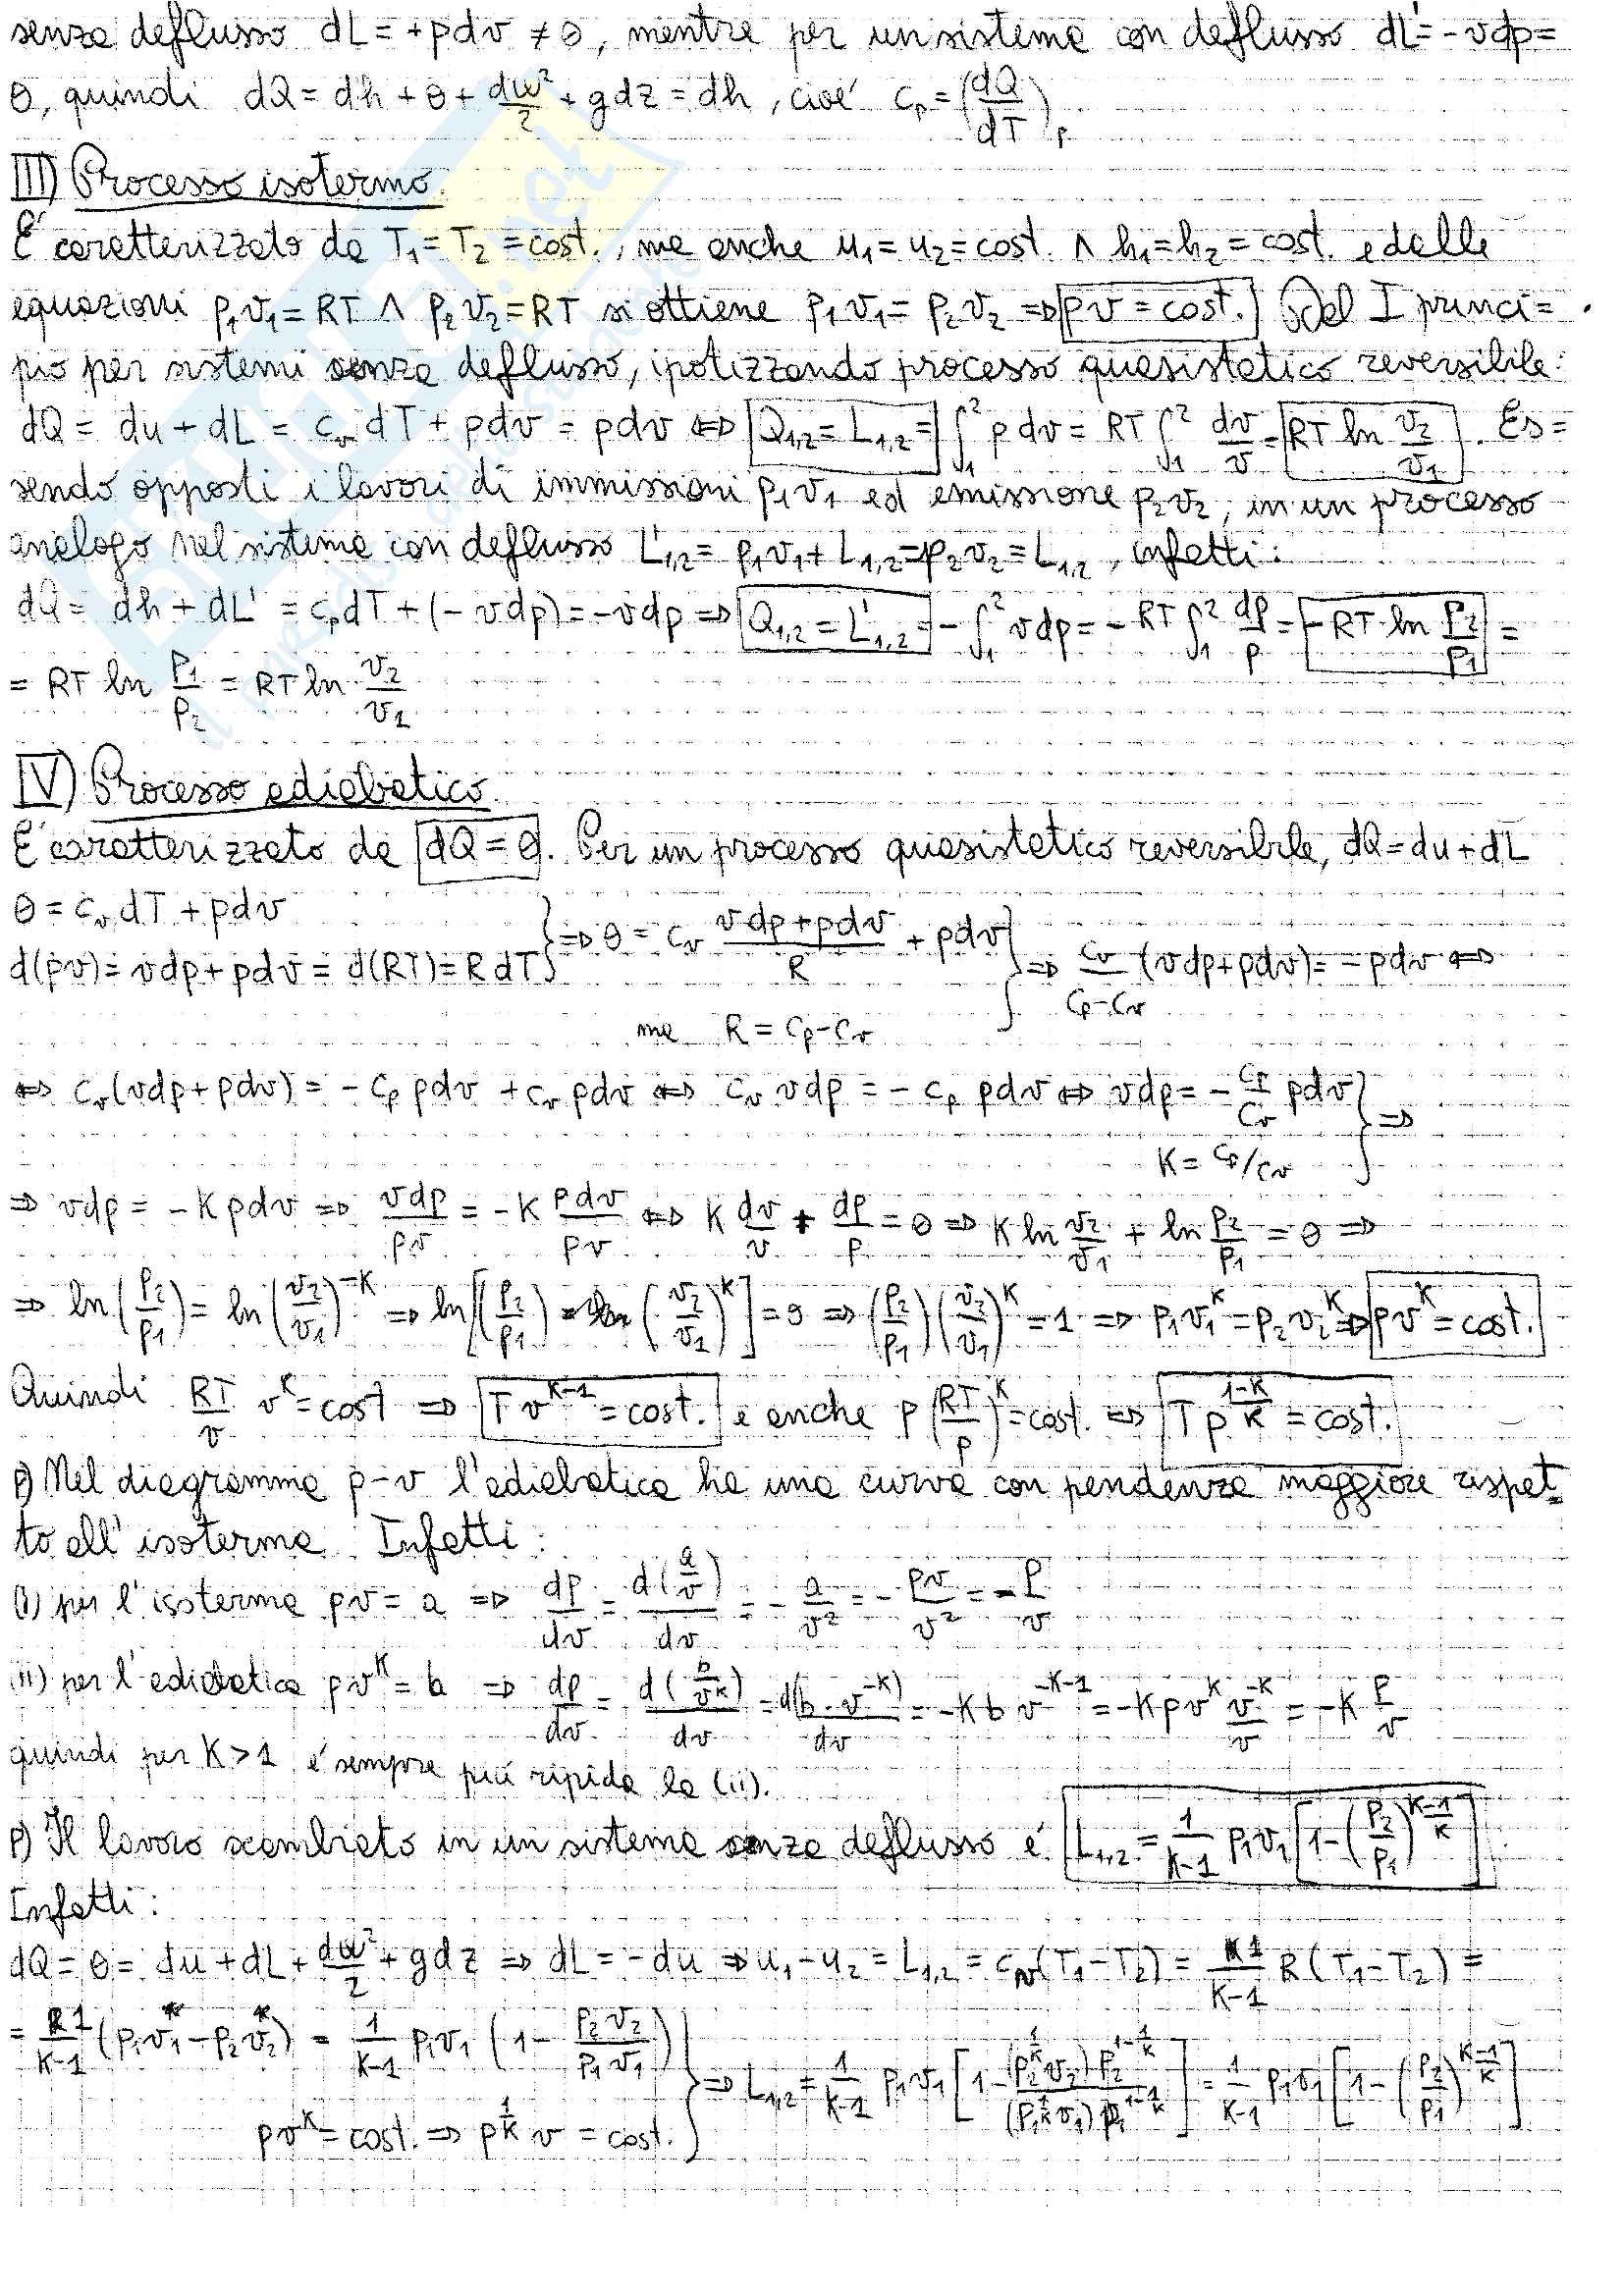 senza deflusso dL = +pdv ≠ 0, mentre per un sistema con deflusso dL' = -vdp =
0, quindi dQ = dh + 0 + dw²/2 + gdz = dh, cioé c_p = (dQ/dT)_p
III) Processo isotermo.
É caratterizzato da T₁ = T₂ = cost., ma anche u₁ = u₂ = cost. ∧ h₁ = h₂ = cost. e dalle
equazioni p₁v₁ = RT ∧ p₂v₂ = RT si ottiene p₁v₁ = p₂v₂ ⇒ pv = cost. Dal I princi=
pio per sistemi senza deflusso, ipotizzando processo quasistatico reversibile:
dQ = du + dL = c_v dT + pdv = pdv ⇔ Q₁,₂ = L₁,₂ = ∫₁² p dv = RT ∫₁² dv/v = RT ln v₂/v₁. Es=
sendo opposti i lavori di immissioni p₁v₁ ed emissione p₂v₂, in un processo
analogo nel sistema con deflusso L'₁,₂ = p₁v₁ + L₁,₂ = p₂v₂ = L₁,₂, infatti:
dQ = dh + dL' = c_p dT + (-vdp) = -vdp ⇒ Q₁,₂ = L'₁,₂ = -∫₁² vdp = -RT ∫₁² dp/p = -RT ln p₂/p₁ =
= RT ln p₁/p₂ = RT ln v₂/v₁
IV) Processo adiabatico
É caratterizzato da dQ = 0. Per un processo quasistatico reversibile, dQ = du + dL
0 = c_v dT + pdv
d(pv) = vdp + pdv = d(RT) = R dT } ⇒ 0 = c_v (vdp + pdv)/R + pdv } ⇒ c_v/(c_p - c_v) (vdp + pdv) = -pdv ⇔
ma R = c_p - c_v
⇔ c_v(vdp + pdv) = -c_p pdv + c_v pdv ⇔ c_v vdp = -c_p pdv ⇔ vdp = -c_p/c_v pdv } ⇒
K = c_p/c_v
⇒ vdp = -K pdv ⇒ vdp/pv = -K pdv/pv ⇔ K dv/v + dp/p = 0 ⇒ K ln v₂/v₁ + ln p₂/p₁ = 0 ⇒
⇒ ln(p₂/p₁) = ln(v₂/v₁)^-K ⇒ ln[(p₂/p₁) (v₂/v₁)^K] = 0 ⇒ (p₂/p₁)(v₂/v₁)^K = 1 ⇒ p₁v₁^K = p₂v₂^K ⇒ pv^K = cost.
Quindi RT/v v^K = cost ⇒ T v^(K-1) = cost. e anche p(RT/p)^K = cost. ⇒ T p^((1-K)/K) = cost.
P) Nel diagramma p-v l'adiabatica ha una curva con pendenza maggiore rispet=
to all'isoterma. Infatti:
(i) per l'isoterma pv = a ⇒ dp/dv = d(a/v)/dv = -a/v² = -pv/v² = -p/v
(ii) per l'adiabatica pv^K = b ⇒ dp/dv = d(b/v^K)/dv = d(b·v^-K)/dv = -K b v^(-K-1) = -K p v^K v^-K/v = -K p/v
quindi per K > 1 é sempre piú ripida la (ii).
P) Il lavoro scambiato in un sistema senza deflusso é L₁,₂ = 1/(K-1) p₁v₁ [1 - (p₂/p₁)^((K-1)/K)]
Infatti:
dQ = 0 = du + dL + dw²/2 + gdz ⇒ dL = -du ⇒ u₁ - u₂ = L₁,₂ = c_v(T₁ - T₂) = 1/(K-1) R (T₁ - T₂) =
= 1/(K-1) (p₁v₁ - p₂v₂) = 1/(K-1) p₁v₁ (1 - p₂v₂/p₁v₁) } ⇒ L₁,₂ = 1/(K-1) p₁v₁ [1 - (p₂^(1/K) v₂) p₂^(1-1/K) / (p₁^(1/K) v₁) p₁^(1-1/K)] = 1/(K-1) p₁v₁ [1 - (p₂/p₁)^((K-1)/K)]
pv^K = cost. ⇒ p^(1/K) v = cost.